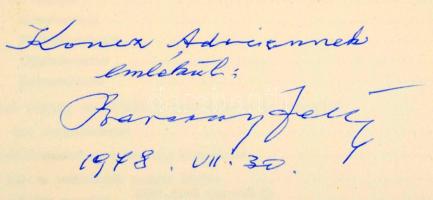 Koncz Adriennek
emlékül:
Barcsay Jenő
1978. VII. 30.